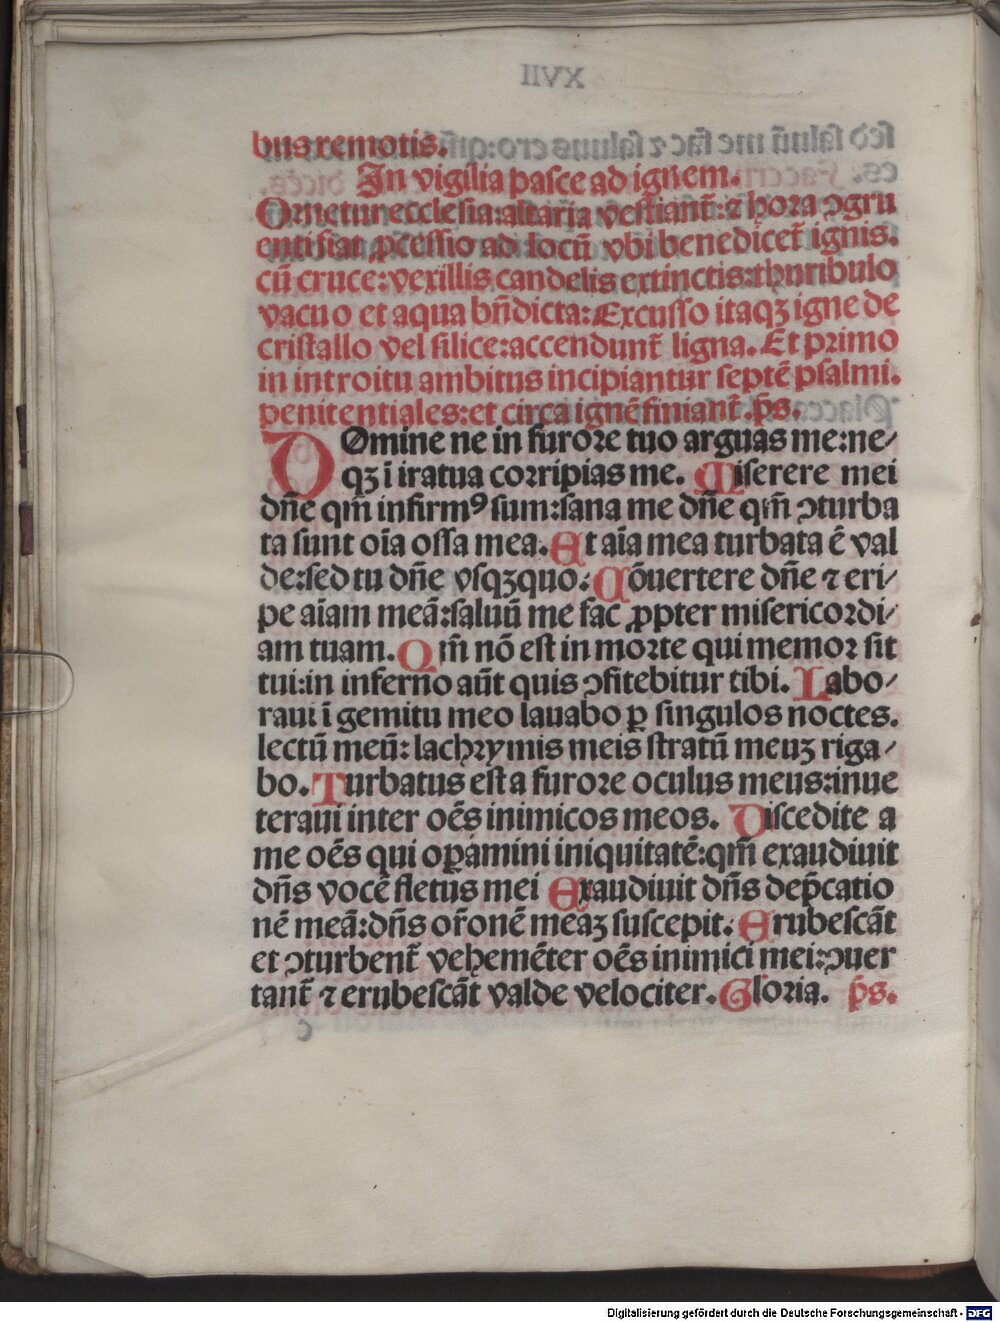 bus remotis.
In vigilia pasce ad ignem.
Ornetur ecclesia: altaria vestiant̃: ⁊ hora ꝯgru
enti fiat ꝓcessio ad locũ vbi benedicet̃ ignis.
cũ cruce: vexillis candelis extinctis: thuribulo
vacuo et aqua bñdicta: Excusso itaqꝫ igne de
cristallo vel silice: accendunt̃ ligna. Et primo
in introitu ambitus incipiantur septẽ psalmi.
penitentiales: et circa ignẽ finiant̃. p̃s.
DOmine ne in furore tuo arguas me: ne⸗
qꝫ ĩ ira tua corripias me. Miserere mei
dñe qm̃ infirmꝰ sum: sana me dñe qm̃ ꝯturba
ta sunt oĩa ossa mea. Et aĩa mea turbata ẽ val
de: sed tu dñe vsqꝫquo. Cõuertere dñe ⁊ eri⸗
pe aĩam meã: saluũ me fac ꝓpter misericordi⸗
am tuam. Qm̃ nõ est in morte qui memor sit
tui: in inferno aũt quis ꝯfitebitur tibi. Labo⸗
raui ĩ gemitu meo lauabo ꝑ singulos noctes.
lectũ meũ: lachrymis meis stratũ meuꝫ riga⸗
bo. Turbatus est a furore oculus meus: inue
teraui inter oẽs inimicos meos. Discedite a
me oẽs qui oꝑamini iniquitatẽ: qm̃ exaudiuit
dñs vocẽ fletus mei Exaudiuit dñs dep̃catio
nẽ meã: dñs or̃onẽ meaꝫ suscepit. Erubescãt
et ꝯturbent̃ vehemẽter oẽs inimici mei: ꝯuer
tant̃ ⁊ erubescãt valde velociter. Gloria. p̃s.
Digitalisierung gefördert durch die Deutsche Forschungsgemeinschaft - DFG